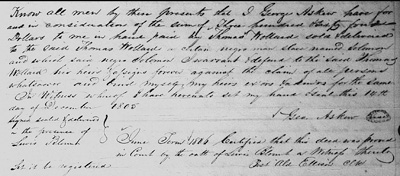 Know all men by these presents that I George Askew have for
and in consideration of the sum of Three hundred & thirty four
Dollars to me in hand paid by Thomas Wollard sold & delivered
to the said Thomas Wollard a certain negro man slave named Solomon
and which said negro Solomon I warrant & defend to the said Thomas
Wollard his heirs & assigns forever against the claim of all persons
whatsoever and I bind myself my heirs
In Witness whereof I have hereunto set my hand & seal this 14th
day of December 1805
Geo. Askew
Signed sealed & delivered
in the presence of
Lewis
June Term 1806 Certified that this deed was proved
in Court by the oath of Lewis a Witness thereto
Let it be registered